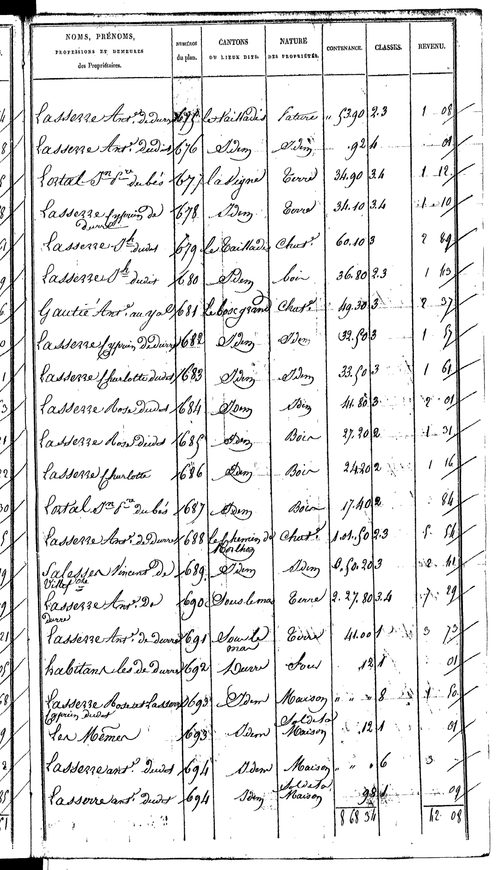 NOMS, PRÉNOMS, PROFESSIONS ET DEMEURES des Propriétaires. NUMÉROS du plan. CANTONS OU LIEUX DITS. NATURE DES PROPRIÉTÉS. CONTENANCE. CLASSES. REVENU.
Lasserre Ant.e de durre 1675 le Vaillades Pature " 53.90 2.3 1 08
Lasserre Ant.e dudit 1676 Idem Idem . 92 4 01
Portal du bés 1677 la Vigne Terre 34.90 3.4 1 12
Lasserre Cyprien de durre 1678 Idem Terre 34.10 3.4 1 10
Lasserre J.h dudit 1679 le Taillades Chat.e 60.10 3 2 89
Lasserre J.h dudit 1680 Idem bois 36.80 2.3 1 43
Gautié Ant.e au 1681 Le bosc grand Chat.e 49.30 3 2 37
Lasserre Cyprien de durre 1682 Idem Idem 32.50 3 1 57
Lasserre Charlotte dudit 1683 Idem Idem 33.50 3 1 61
Lasserre Rose dudit 1684 Idem Idem 41.80 3 2 01
Lasserre Rose dudit 1685 Idem Bois 27.20 2 1 31
Lasserre Charlotte 1686 Idem Bois 24.20 2 1 16
Portal du bés 1687 Idem Bois 17.40 2 84
Lasserre Ant.e de Durre 1688 le Chemin de Morlhon Chat.e 1.01.50 2.3 5 54
Salesses Vincent de Villef.che 1689 Idem Idem 0.50.20 3 2 41
Lasserre Ant.e De Durre 1690 Sous le mas Terre 2.27.80 3.4 7 29
Lasserre Ant.e de Durre 1691 Sous le mas Terre 41.00 1 3 73
habitans les de durre 1692 Durre Sous . 12 1 01
Lasserre Rose et Lasserre Cyprien dudit 1693 Idem Maison " " " 8 1 50
Les Mêmes 1693 Idem Sol de la Maison . 12 1 01
Lasserre ant.e dudit 1694 Idem Maison " " " 6 3
Lasserre ant.e dudit 1694 Idem Sol de la Maison . 98 1 09
8 68 34 42 08